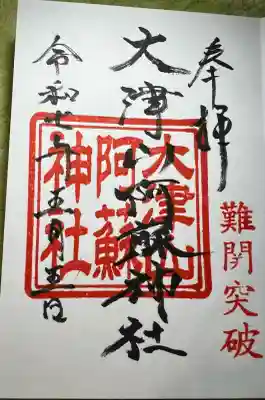 奉拝
難関突破
大津山阿蘇神社
大津山
阿蘇
神社
令和 五月五日